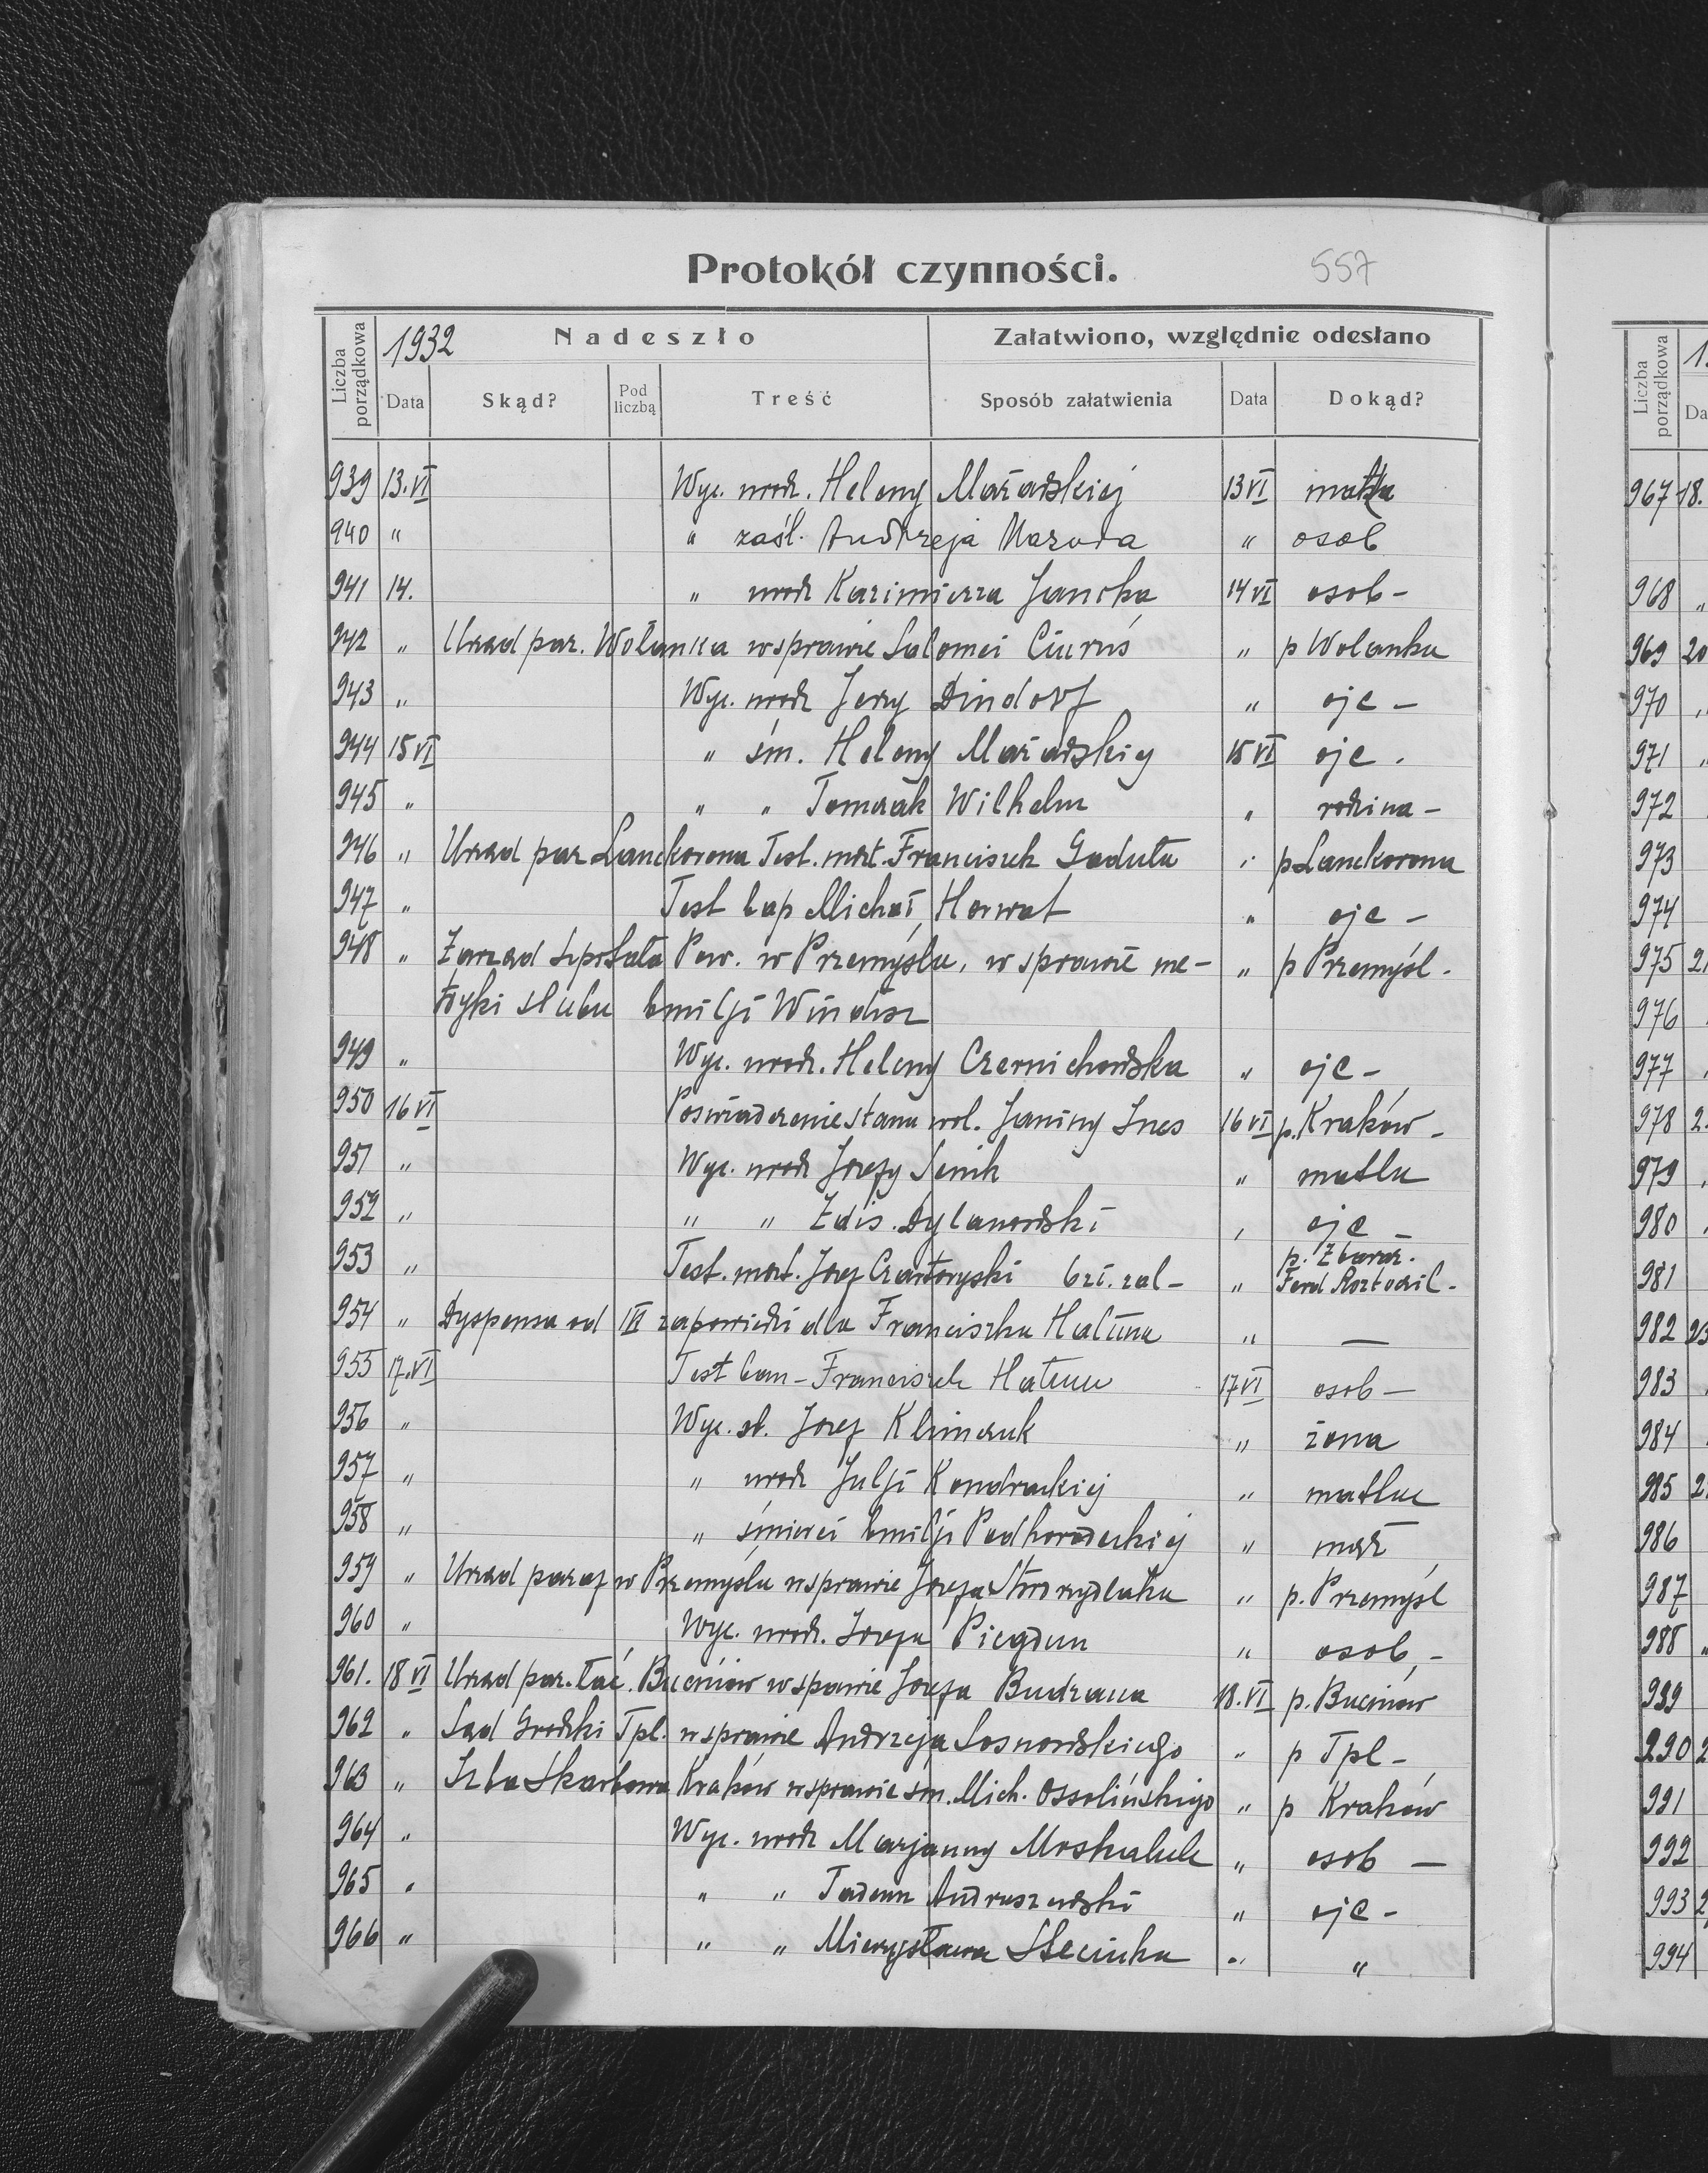 Protokół czynności. 557
Liczba porządkowa 1932 Nadeszło Załatwiono, względnie odesłano
Data Skąd? Pod liczbą Treść Sposób załatwienia Data Dokąd?
939 13.VI Wyc. urodz. Heleny 13 VI matka
940 " " zaśl. Andrzeja Mazura " osob
941 14. " urodz Kazimierza Jancha 14 VI osob -
942 " Urząd par. Wolanka w sprawie Salomei Ciuruś " p Wolanka
943 " Wyc. urodz Jerzy Dindorf " ojc -
944 15 VI " śm. Heleny 15 VI ojc .
945 " " " Tomczak Wilhelm " rodzina -
946 " Urząd par Lanckorona Test. mrt. Franciszek Gaduła " p Lanckorona
947 " Test bap Michał Horwat " ojc -
948 " Zarząd Szpitala Pow. w Przemyślu, w sprawie me- " p Przemyśl -
tryki ślubu Emilji Windisz
949 " Wyc. urodz. Heleny Czernichowska " ojc -
950 16 VI Poświadczenie stanu wol. Janiny 16 VI p. Kraków -
951 " Wyc. urodz Józefy Senik " matka
952 " " " Zdis. Dylanowski , ojc -
953 " Test. mort. Józef Czartoryski " p. Zbaraż.
Ferd
954 " Dyspensa od III zapowiedzi dla Franciszka " —
955 17.VI Test ban - Franciszek 17 VI osob —
956 " Wyc. sł. Józef Klimczuk " żona
957 " " urodz Julji Kondrackiej " matka
958 " " śmierci Emilji Podhorodeckiej " mąż
959 " Urząd paraf w Przemyślu w sprawie Józefa " p. Przemyśl
960 " Wyc. urodz. Józefa Piegdun " osob, -
961. 18 VI Urząd par. łać. Bucniów w spawie Józefa 18.VI p. Bucniów
962 " Sąd Grodzki Tpl. w sprawie Andrzeja Sosnowskiego " p Tpl -
963 " Izba Skarbowa Kraków w sprawie śm. Mich. Ossolińskiego " p Kraków
964 " Wyc. urodz Marjanny " osob —
965 " " " Tadeusz Andruszewski " ojc -
966 " " " Mieczysława Steciuka " "
Liczba porządkowa
967 18.
968 "
969 20
970
971
972
973
974
975 2
976
977
978 2
979
980
981
982 23
983
984
985 2
986
987
988
989
290 2
991
992
993 2
994